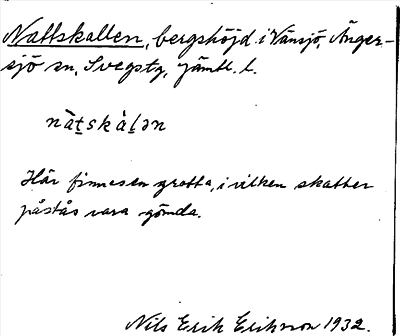 Nattskallen, bergshöjd i Vänsjö, Änger-
sjö sn, Svegs tg, Jämtl. l.
nàt̲skàḷən
Här finnes en grotta, i vilken skatter
påstås vara gömda.
Nils Erik Eriksson 1932.